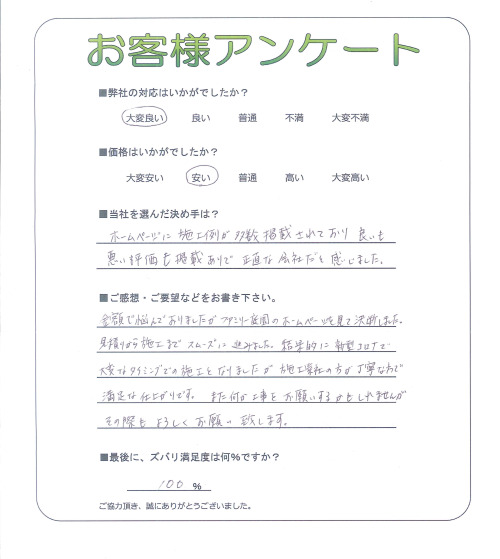 お客様アンケート
■弊社の対応はいかがでしたか?
大変良い 良い 普通 不満 大変不満
■価格はいかがでしたか?
大変安い 安い 普通 高い 大変高い
■当社を選んだ決め手は?
ホームページに施工例が多数掲載されており良いも
悪い評価も掲載ありで正直な会社だと感じました。
■ご感想・ご要望などをお書き下さい。
金額で悩んでおりましたがファミリー庭園のホームページを見て決断しました。
見積りから施工までスムーズに進みました。結果的に新型コロナで
大変なタイミングでの施工となりましたが施工業社の方が丁寧なので
満足な仕上がりです。また何か工事をお願いするかもしれませんが
その際もよろしくお願い致します。
■最後に、ズバリ満足度は何%ですか?
100 %
ご協力頂き、誠にありがとうございました。